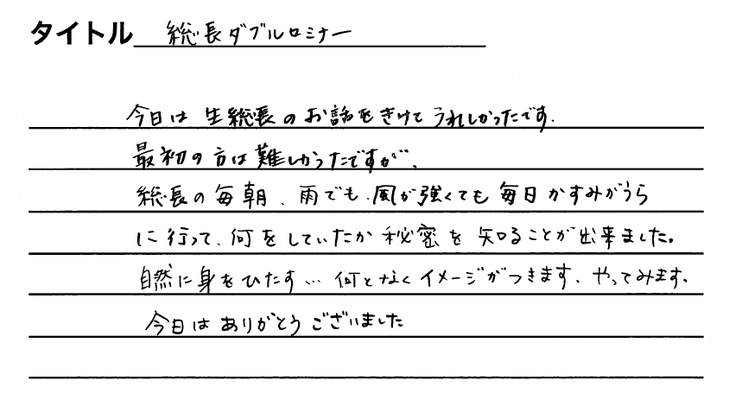 タイトル 総長ダブルセミナー
今日は 生総長のお話をきけてうれしかったです.
最初の方は難しかったですが、
総長の毎朝、雨でも.風が強くても毎日かすみがうら
に行って、何をしていたか秘密を知ることが出来ました。
自然に身をひたす…何となくイメージがつきます、やってみます.
今日はありがとうございました